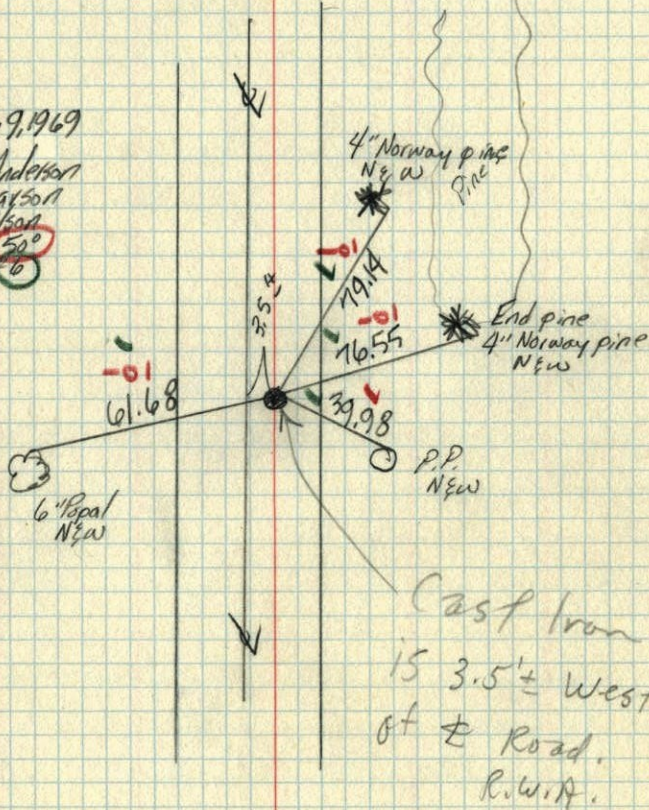 9,1969
Anderson
son
50°
6
4" Norway pine
N&W
Pine
3.5±
79.14
76.55
End pine
4" Norway pine
N&W
61.68
39.98
6" Popal
N&W
P.P.
N&W
Cast Iron
is 3.5'± West
of ℄ Road.
R.W.A.